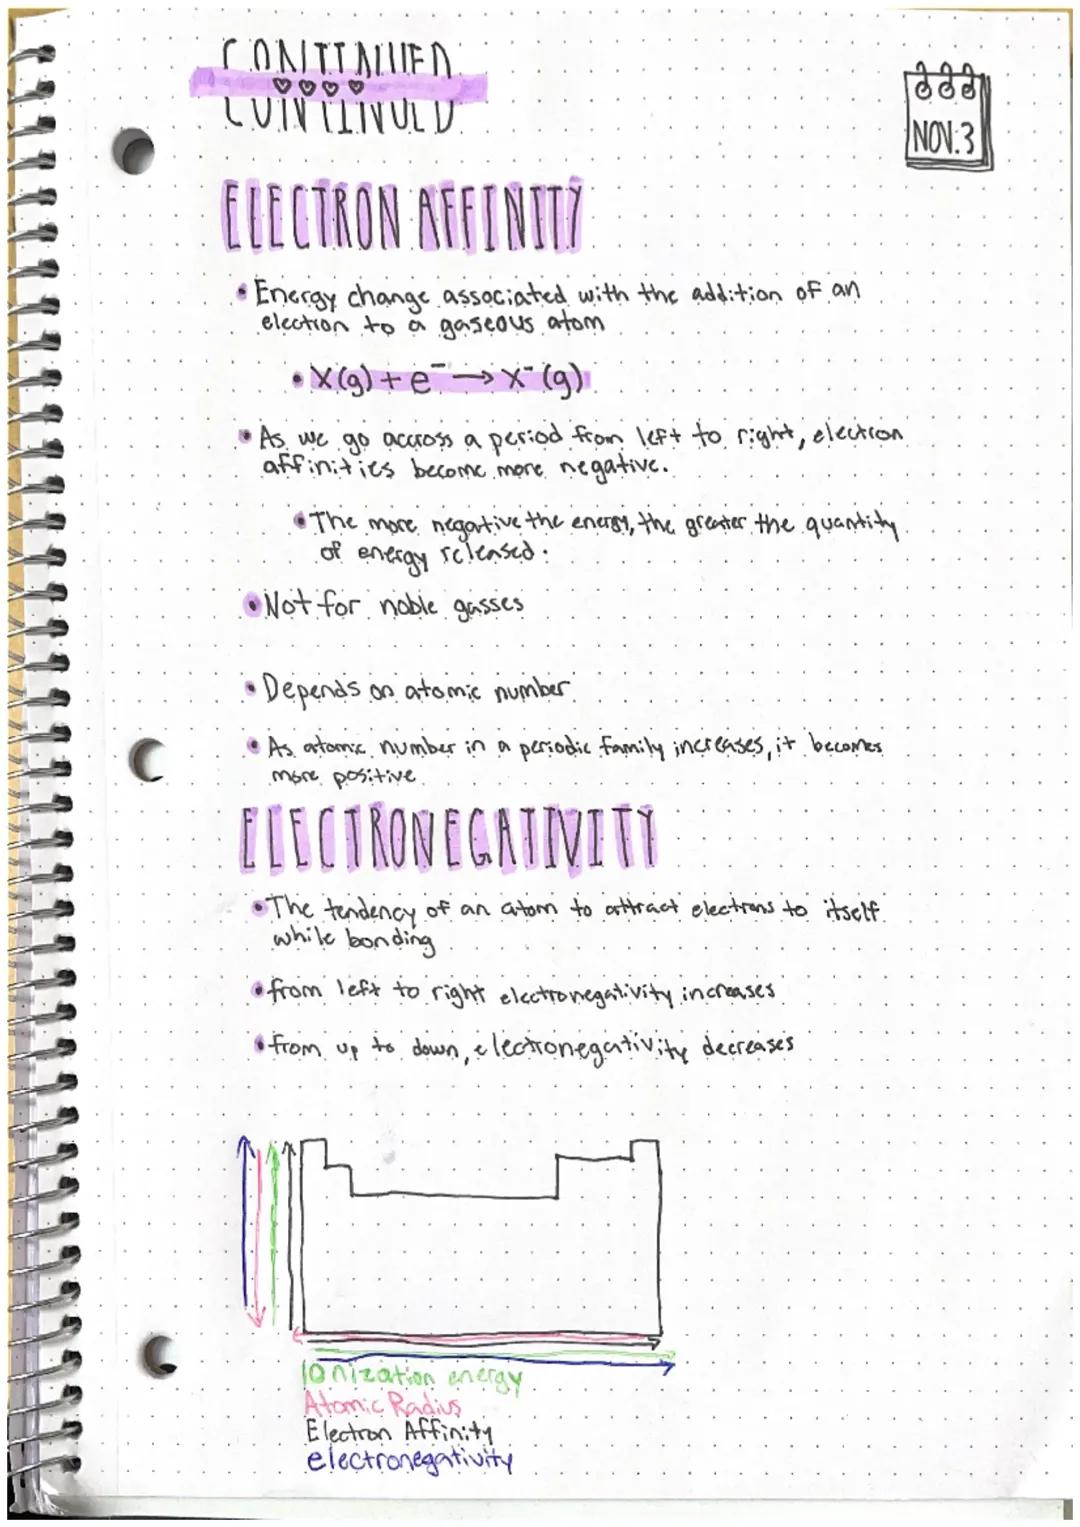 CONTINUED
NOV. 3
ELECTRON AFFINITY
• Energy change associated with the addition of an
electron to a gaseous atom
• X(g) + e⁻ → X⁻(g)
• As we go accross a period from left to right, electron
affinities become more negative.
• The more negative the energy, the greater the quantity
of energy released.
• Not for noble gasses
• Depends on atomic number
• As atomic number in a periodic family increases, it becomes
more positive
ELECTRONEGATIVITY
• The tendency of an atom to attract electrons to itself
while bonding
• from left to right electronegativity increases
• from up to down, electronegativity decreases
Ionization energy
Atomic Radius
Electron Affinity
electronegativity